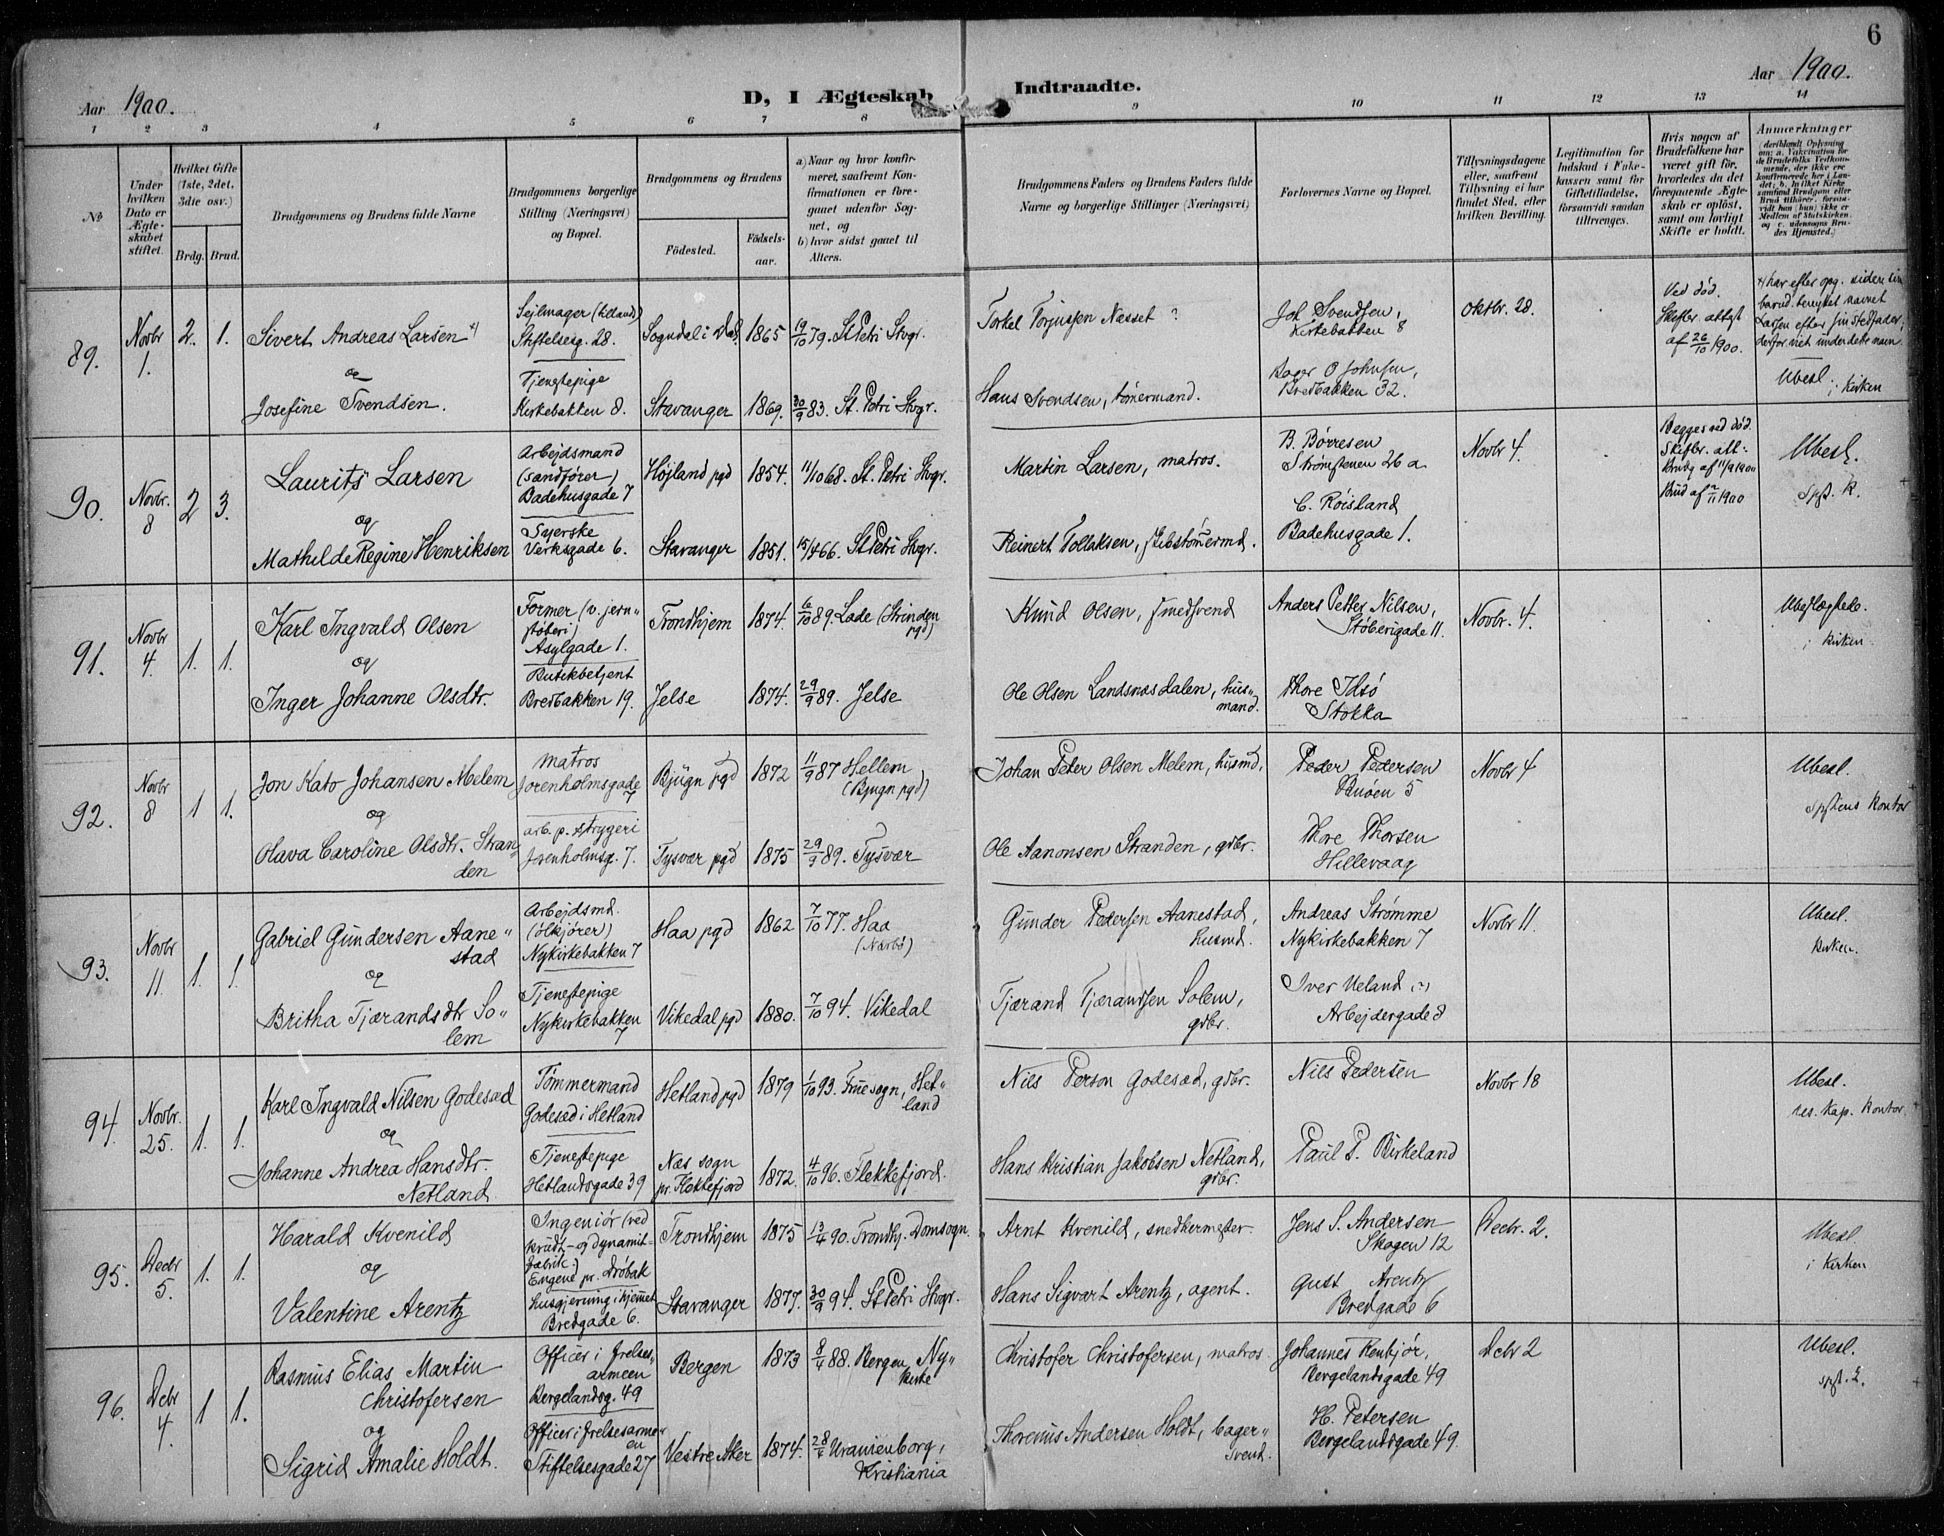 6
Aar 1900.
D, I Ægteskab Indtraadte.
Aar 1900.
1 2 3 4 5 6 7 8 9 10 11 12 13 14
No
Under hvilken Dato er Ægteskabet stiftet.
Hvilket Gifte (1ste, 2det, 3die osv.)
Brdg. Brud.
Brudgommens og Brudens fulde Navne
Brudgommens borgerlige Stilling (Næringsvei) og Bopæl.
Brudgommens og Brudens
Födested. Födsels-aar.
a) Naar og hvor konfirmeret, saafremt Konfirmationen er foregaaet udenfor Sognet, og
b) hvor sidst gaaet til Alters.
Brudgommens Faders og Brudens Faders fulde Navne og borgerlige Stillinger (Næringsvei)
Forlovernes Navne og Bopæl.
Tillysningsdagene eller, saafremt Tillysning ei har fundet Sted, efter hvilken Bevilling.
Legitimation for Indskud i Enkekassen samt for Giftetilladelse, forsaavidt saadan tiltrænges.
Hvis nogen af Brudefolkene har været gift för, hvorledes da det foregaaende Ægteskab er oplöst, samt om lovligt Skifte er holdt.
Anmærkninger
89.
Novbr 1.
2. 1.
Sivert Andreas Larsen
og
Josefine Svendsen.
Sejlmager
Stiftelsesg. 28.
Tjenestepige
Kirkebakken 8.
Sogndal i Dal. 1865 19/10 79. St Petri Stvgr.
Stavanger 1869. 30/9 83. St. Petri Stvgr.
Torkel Torjussen Næsset ?
Hans Svendsen, tömermand.
Joh Svendsen,
Kirkebakken 8
Bager O Johnsen,
Bredbakken 32.
Oktbr. 28.
Ved död.
Skifter. attest
af 26/10 1900.
har efter opg. siden sin
barnd. benyttet navnet
Larsen efter sin Stedfader,
derfor viet under dette navn.
Ubesl. i kirken
90.
Novbr. 8
2 3.
Laurits Larsen
og
Mathilde Regine Henriksen
Arbejdsmand
(sandförer)
Badehusgade 7
Syerske
Verksgade 6.
Höjland pgd 1854. 11/10 68. St. Petri Stvgr.
Stavanger 1851. 15/4 66. St Petri Stvgr.
Martin Larsen, matros.
Reinert Tollaksen, skibstömermd.
B. Börresen
Strömstenen 26 a
C. Röisland
Badehusgade 1.
Novbr 4.
Begges ved död.
Ubesl.
91.
Novbr 4.
1. 1.
Karl Ingvald Olsen
og
Inger Johanne Olsdtr.
Former (v. jern-
stöberi)
Asylgade 1.
Butikbetjent
Bredbakken 19.
Trondhjem 1874. 6/10 89. Lade (Strinden
pgd)
Jelse 1874. 29/9 89. Jelse
Knud Olsen, smedsvend
Ole Olsen Landsnæsdalen, hus-
mand.
Anders Petter Nilsen,
Stöberigade 11.
Thore Idsö
Stokka
Novbr. 4.
Ubeslægtede.
i kirken
92.
Novbr 8
1 1.
Jon Kato Johansen Melem
og
Olava Caroline Olsdtr. Stran-
den
matros
Jorenholmsgade
7
arb. p. strygeri
Jorenholmsg. 7.
Bjugn pgd 1872 11/9 87 Hellem
(Bjugn pgd)
Tysvær pgd 1875 29/9 89. Tysvær
Johan Peter Olsen Melem, husmd.
Ole Aanonsen Stranden, gdbr.
Peder Pedersen
Buöen 5
Thore Thorsen
Hillevaag
Novbr 4
Ubesl.
Spstens kontor
93.
Novbr 11.
1. 1.
Gabriel Gundersen Aane-
stad
og
Britha Tjærandsdtr So-
lem
Arbejdsmd.
(ölkjörer)
Nykirkebakken 7
Tjenestepige
Nykirkebakken
7
Haa pgd 1862 7/10 77. Haa
(Nærbö)
Vikedal pgd 1880. 7/10 94. Vikedal
Gunder Pedersen Aanestad,
husmd.
Tjærand Tjærandsen Solem,
gdbr.
Andreas Strömme
Nykirkebakken 7
Iver Ueland
Arbejdergade 8
Novbr 11.
Ubesl.
kirken.
94.
Novbr. 25.
1. 1.
Karl Ingvald Nilsen Godesæd
og
Johanne Andrea Hansdtr.
Netland
Tömmermand
Godesæd i Hetland
Tjenestepige
Hetlandsgade 39
Hetland pgd 1879 1/10 93. Fruesogn, Het-
land
Næs sogn
pr. Flekkefjord 1872. 4/10 96. Flekkefjord.
Nils Person Godesæd, gdbr.
Hans Kristian Jakobsen Netland,
gdbr.
Nils Pedersen
Paul P. Birkeland
Novbr 18
Ubesl.
res. kap. kontor.
95.
Decbr 5.
1. 1.
Harald Kvenild
og
Valentine Arentz
Ingeniör (ved
krudt- og dynamit-
fabrik.)
Engene pr. Dröbak
husgjerning i hjemet
Bredgade 6.
Trondhjem 1875 13/4 90. Trondhj. Domsogn.
Stavanger 1877. 30/9 94. St Petri Stvgr.
Arnt Kvenild, snedkermester.
Hans Sigvart Arentz, agent.
Jens S. Andersen
Skagen 12
Gust Arentz
Bredgade 6
Decbr. 2.
Ubesl.
i kirken
96.
Dcbr 4.
1 1.
Rasmus Elias Martin
Christofersen
og
Sigrid Amalie Holdt.
Officer i frelses-
armeen
Bergelandsg. 49
Officer i frelsesarme-
en
Stiftelsesgade 27
Bergen 1873 8/4 88. Bergen, Ny-
kirke
Vestre Aker 1874. Uranienborg,
Kristiania
Christofer Christofersen, matros.
Thorenius Andersen Holdt, bager-
svend.
Johannes Renbjör,
Bergelandsgade 49
H. Petersen
Bergelandsgade 49.
Dcbr 2
Ubesl.